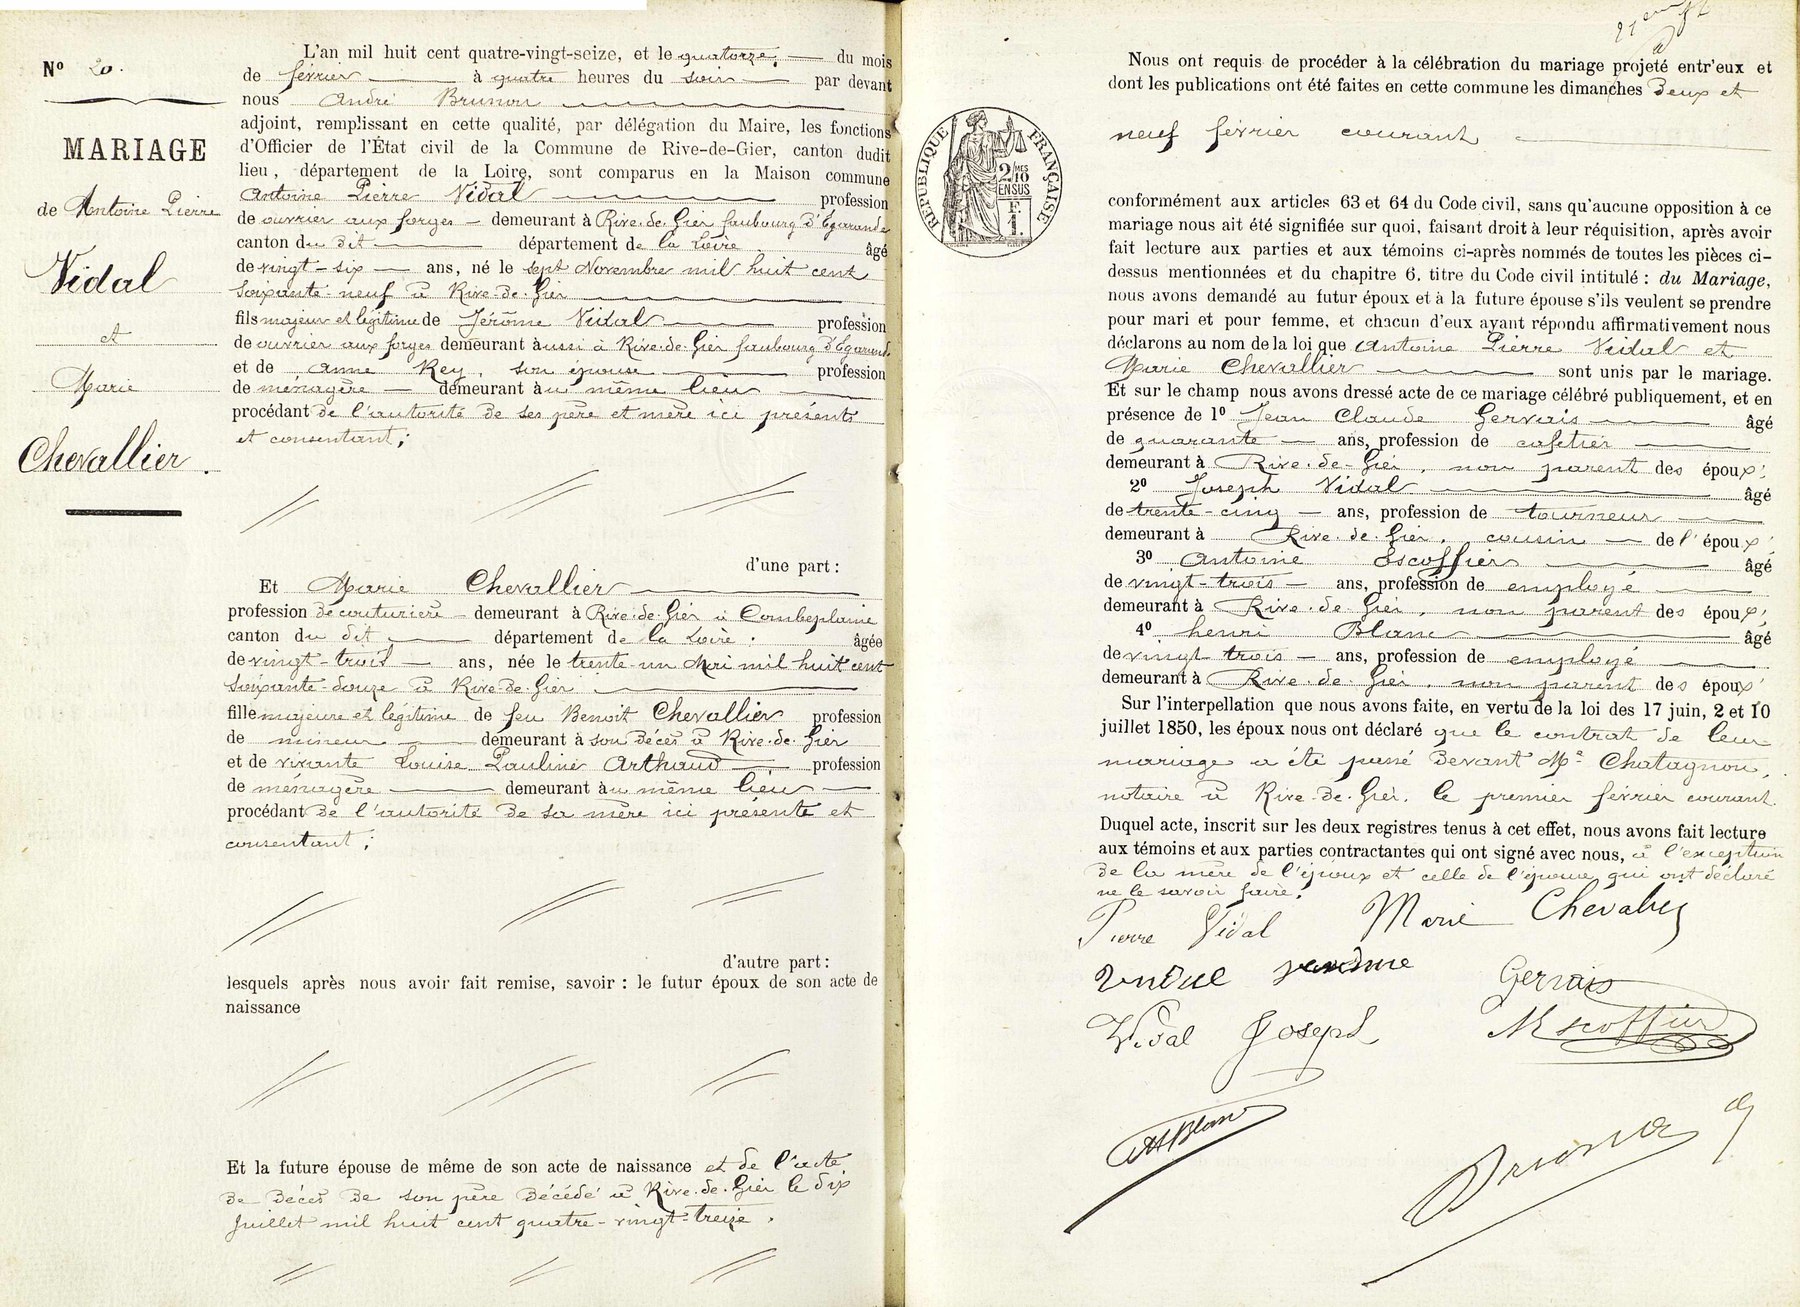 Nº 20.
MARIAGE
de Antoine Pierre
Vidal
et
Marie
Chevallier.
L'an mil huit cent quatre-vingt-seize, et le quatorze, du mois
de février à quatre heures du soir par devant
nous André Brunon
adjoint, remplissant en cette qualité, par délégation du Maire, les fonctions
d'Officier de l'État civil de la Commune de Rive-de-Gier, canton dudit
lieu, département de la Loire, sont comparus en la Maison commune
Antoine Pierre Vidal profession
de ouvrier aux forges demeurant à Rive-de-Gier faubourg d'Egarande
canton du dit département de la Loire âgé
de vingt-six ans, né le sept Novembre mil huit cent
soixante-neuf à Rive-de-Gier
fils majeur et légitime de Jérôme Vidal profession
de ouvrier aux forges demeurant aussi à Rive-de-Gier faubourg d'Egarande
et de Anne Rey, son épouse profession
de ménagère demeurant au même lieu
procédant de l'autorité de ses père et mère ici présents
et consentant;
d'une part :
Et Marie Chevallier
profession de couturière demeurant à Rive-de-Gier à Combeplaine
canton du dit département de la Loire : âgée
de vingt-trois ans, née le trente-un Mai mil huit cent
soixante-douze à Rive-de-Gier
fille majeure et légitime de feu Benoit Chevallier profession
de mineur demeurant à son décès à Rive-de-Gier
et de vivante Louise Pauline Arthaud profession
de ménagère demeurant au même lieu
procédant de l'autorité de sa mère ici présente et
consentant;
d'autre part :
lesquels après nous avoir fait remise, savoir : le futur époux de son acte de
naissance
Et la future épouse de même de son acte de naissance et de l'acte
de décès de son père décédé à Rive-de-Gier le dix
Juillet mil huit cent quatre-vingt-treize.
RÉPUBLIQUE FRANÇAISE
2/10 MES
EN SUS
F.
1.
Nous ont requis de procéder à la célébration du mariage projeté entr'eux et
dont les publications ont été faites en cette commune les dimanches deux et
neuf février courant
conformément aux articles 63 et 64 du Code civil, sans qu'aucune opposition à ce
mariage nous ait été signifiée sur quoi, faisant droit à leur réquisition, après avoir
fait lecture aux parties et aux témoins ci-après nommés de toutes les pièces ci-
dessus mentionnées et du chapitre 6, titre du Code civil intitulé : du Mariage,
nous avons demandé au futur époux et à la future épouse s'ils veulent se prendre
pour mari et pour femme, et chacun d'eux ayant répondu affirmativement nous
déclarons au nom de la loi que Antoine Pierre Vidal et
Marie Chevallier sont unis par le mariage.
Et sur le champ nous avons dressé acte de ce mariage célébré publiquement, et en
présence de 1º Jean Claude Gervais âgé
de quarante ans, profession de cafetier
demeurant à Rive-de-Gier, non parent des époux;
2º Joseph Vidal âgé
de trente-cinq ans, profession de tourneur
demeurant à Rive-de-Gier, cousin de l'époux;
3º Antoine Escoffier âgé
de vingt-trois ans, profession de employé
demeurant à Rive-de-Gier, non parent des époux;
4º henri Blanc âgé
de vingt trois ans, profession de employé
demeurant à Rive-de-Gier, non parent des époux
Sur l'interpellation que nous avons faite, en vertu de la loi des 17 juin, 2 et 10
juillet 1850, les époux nous ont déclaré que le contrat de leur
mariage a été passé devant Me Chatagnon,
notaire à Rive-de-Gier, le premier février courant.
Duquel acte, inscrit sur les deux registres tenus à cet effet, nous avons fait lecture
aux témoins et aux parties contractantes qui ont signé avec nous, à l'exception
de la mère de l'époux et celle de l'épouse qui ont déclaré
ne le savoir faire.
Pierre Vidal Marie Chevalier
Gervais
Vidal Joseph Escoffier
Blanc